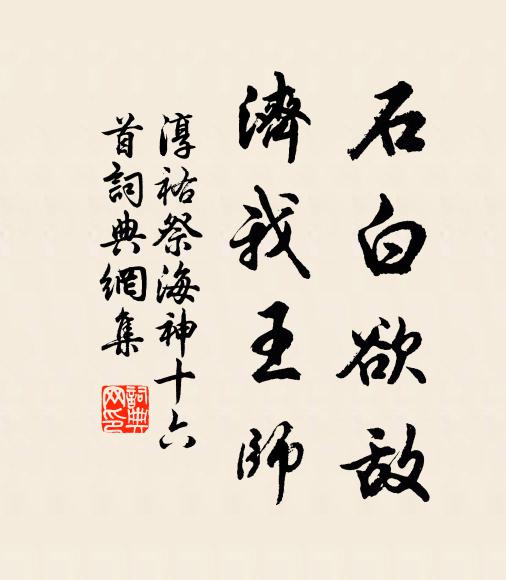 石白欲敌
濟我王師
淳祐祭海神十六
首詞典網集
詞典
网印